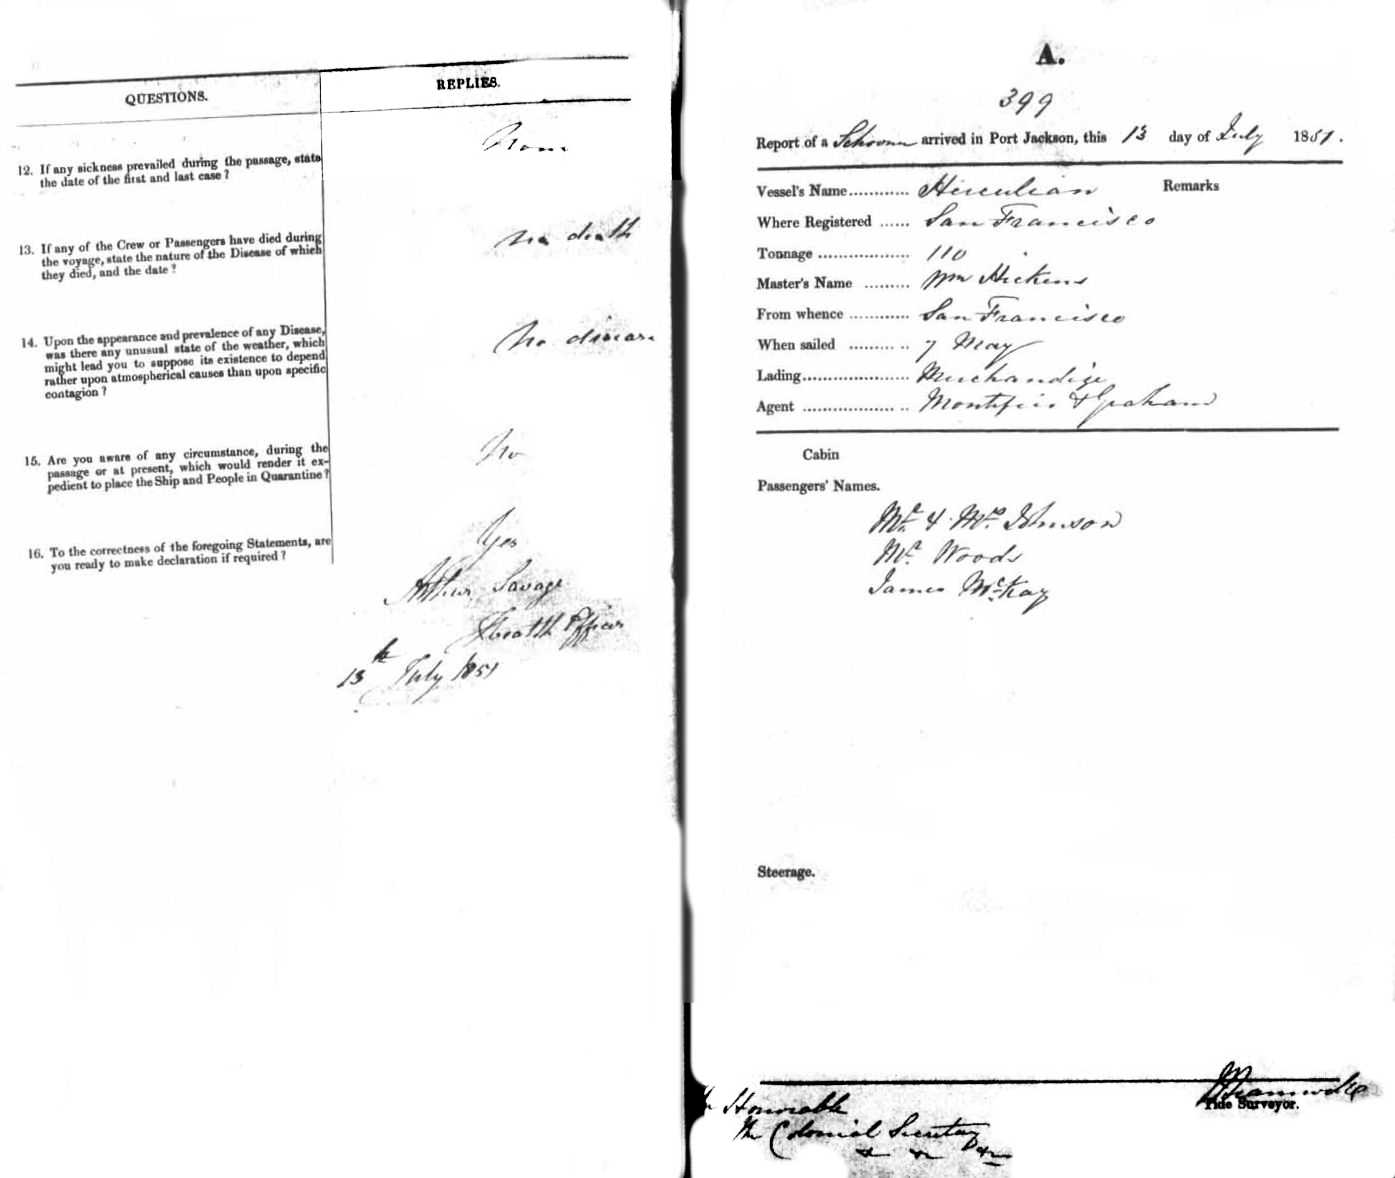 QUESTIONS.
REPLIES.
12. If any sickness prevailed during the passage, state
the date of the first and last case ?
None
13. If any of the Crew or Passengers have died during
the voyage, state the nature of the Disease of which
they died, and the date ?
No death
14. Upon the appearance and prevalence of any Disease,
was there any unusual state of the weather, which
might lead you to suppose its existence to depend
rather upon atmospherical causes than upon specific
contagion ?
No disease
15. Are you aware of any circumstance, during the
passage or at present, which would render it ex-
pedient to place the Ship and People in Quarantine ?
No
16. To the correctness of the foregoing Statements, are
you ready to make declaration if required ?
Yes
Arthur Savage
Health Officer
13th July 1851
A.
399
Report of a Schooner arrived in Port Jackson, this 13 day of July 1851.
Vessel's Name............ Herculean Remarks
Where Registered ...... San Francisco
Tonnage .................. 110
Master's Name ......... Wm Hickens
From whence ............ San Francisco
When sailed ......... .. 7 May
Lading..................... Merchandize
Agent ................... .. Montifeir & Graham
Cabin
Passengers' Names.
Mr. & Mrs. Johnson
Mr. Woods
James McKay
Steerage.
Tide Surveyor.
Honorable
The Colonial Secretary